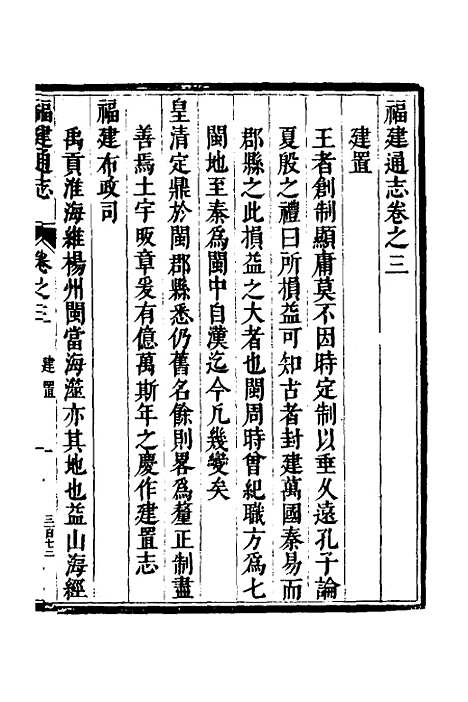 福建通志卷之三
建置
王者創制顯庸莫不因時定制以垂久遠孔子論
夏殷之禮曰所損益可知古者封建萬國秦易而
郡縣之此損益之大者也閩周時曾紀職方為七
閩地至秦為閩中自漢迄今凡幾變矣
皇清定鼎於閩郡縣悉仍舊名餘則畧為釐正制盡
善焉土宇昄章爰有億萬斯年之慶作建置志
福建布政司
禹貢淮海維楊州閩當海澨亦其地也益山海經
福建通志 卷之三 建置 一 三百七二